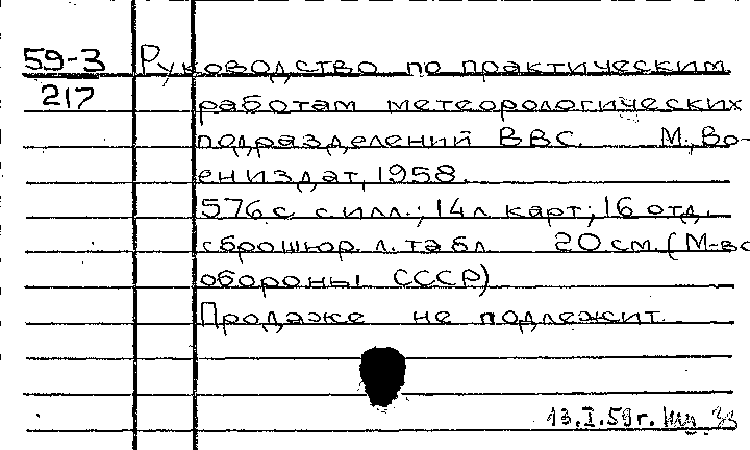 59-3 Руководство по практическим
217 работам метеорологических
подразделений ВВС. М., Во-
ениздат, 1958.
576 с. с илл.; 14 л. карт; 16 отд.
сброшюр. л. табл. 20 см. (М-во
обороны СССР)
Продаже не подлежит.
13.I.59г.